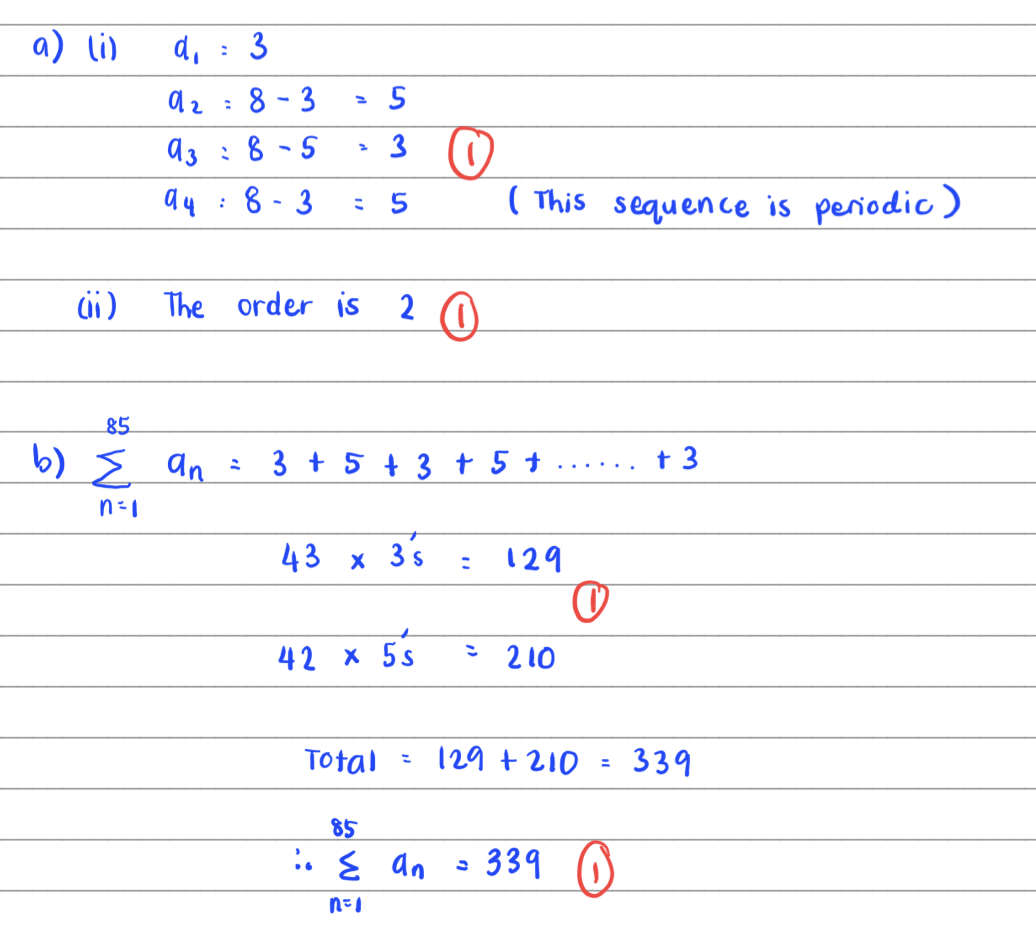 a) (i) a₁ = 3
a₂ = 8 - 3 = 5
a₃ = 8 - 5 = 3 ①
a₄ = 8 - 3 = 5 (This sequence is periodic)
(ii) The order is 2 ①
b) 85 ∑ n=1 aₙ = 3 + 5 + 3 + 5 + ...... + 3
43 × 3's = 129
①
42 × 5's = 210
Total = 129 + 210 = 339
∴ 85 ∑ n=1 aₙ = 339 ①